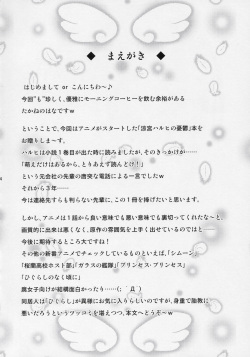 ◆ まえがき ◆
はじめまして or こんにちわ〜♪
今回“も”珍しく、優雅にモーニングコーヒーを飲む余裕がある
たかねのはなです。
ということで、今回はアニメがスタートした「涼宮ハルヒの憂鬱」本を
お贈りしまーす。
ハルヒは小説1巻目が出た時に読みましたが、そのきっかけが…
「萌えだけはあるから、とりあえず読んとけ!」
という元会社の先輩の唐突な電話による一言でした
それから3年…
今は連絡先すら判らない先輩に、この1冊を捧げたいと思います。
しかし、アニメは1話から良い意味でも悪い意味でも裏切ってくれたなーと。
画質的に出来は悪くないし、原作の雰囲気を上手く出せているのでは
今後に期待するところ大ですね!
その他の新番アニメでチェックしているものといえば、「シムーン」
「桜蘭高校ホスト部」「ガラスの艦隊」「プリンセス・プリンセス」
「ひぐらしのなく頃に」
腐女子向けが結構面白かったり…(;´Д`)
同居人は「ひぐらし」が異様にお気に入りらしいのですが、身重で胎教に
悪いだろうというツッコミを堪えつつ、本文へどうぞ〜